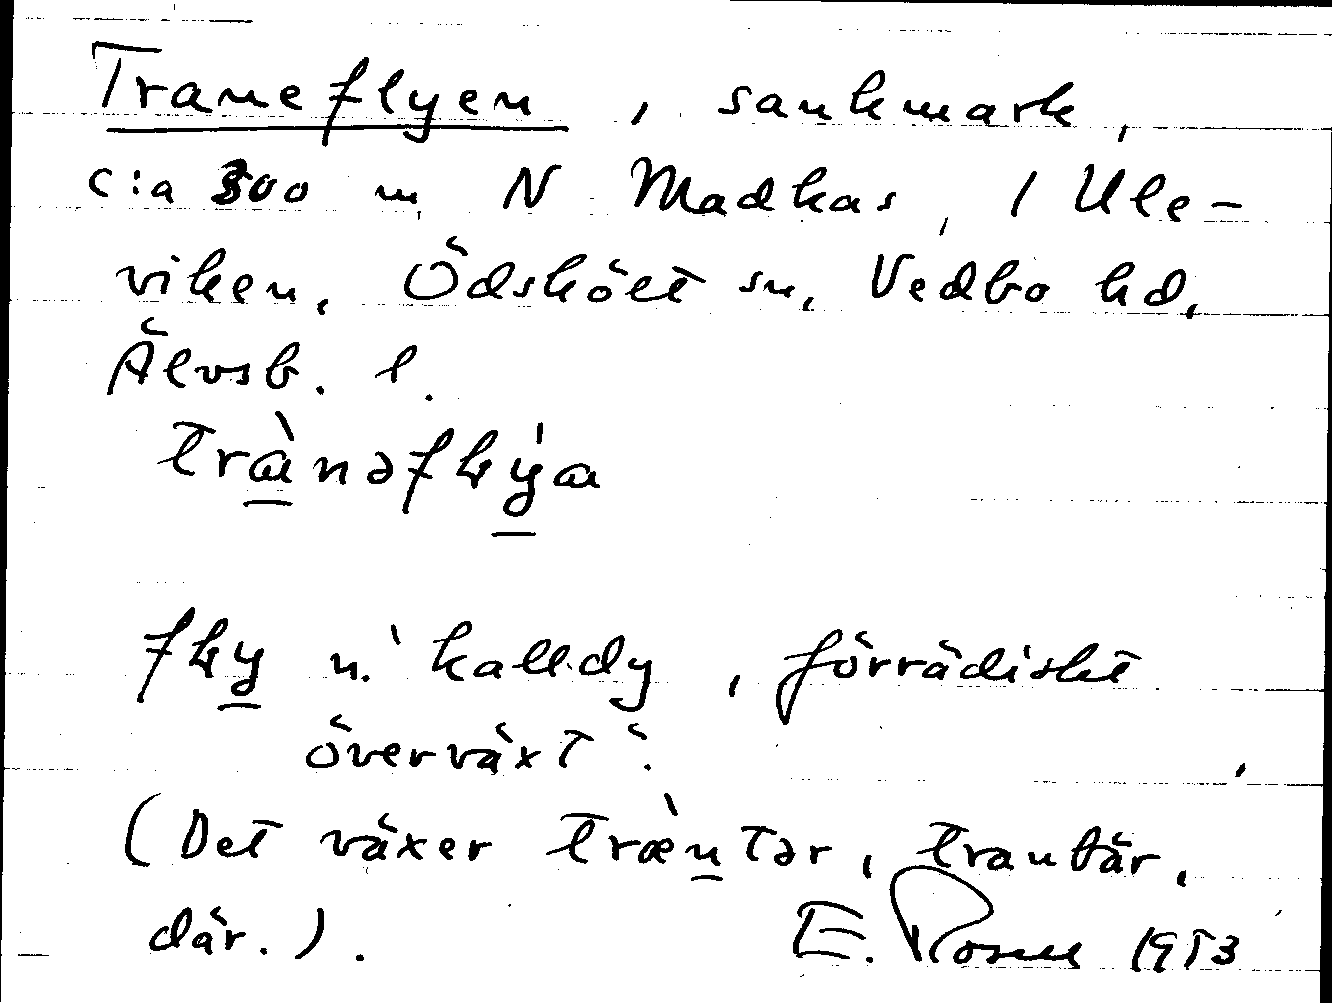 Traneflyen, sankmark,
c:a 300 m N Madkas, i Ule-
viken, Ödskölt sn, Vedbo hd,
Älvsb. l.
fly n. 'källdy, förrädiskt
överväxt'.
(Det växer tranbär,
där.). E. Rosell 1953